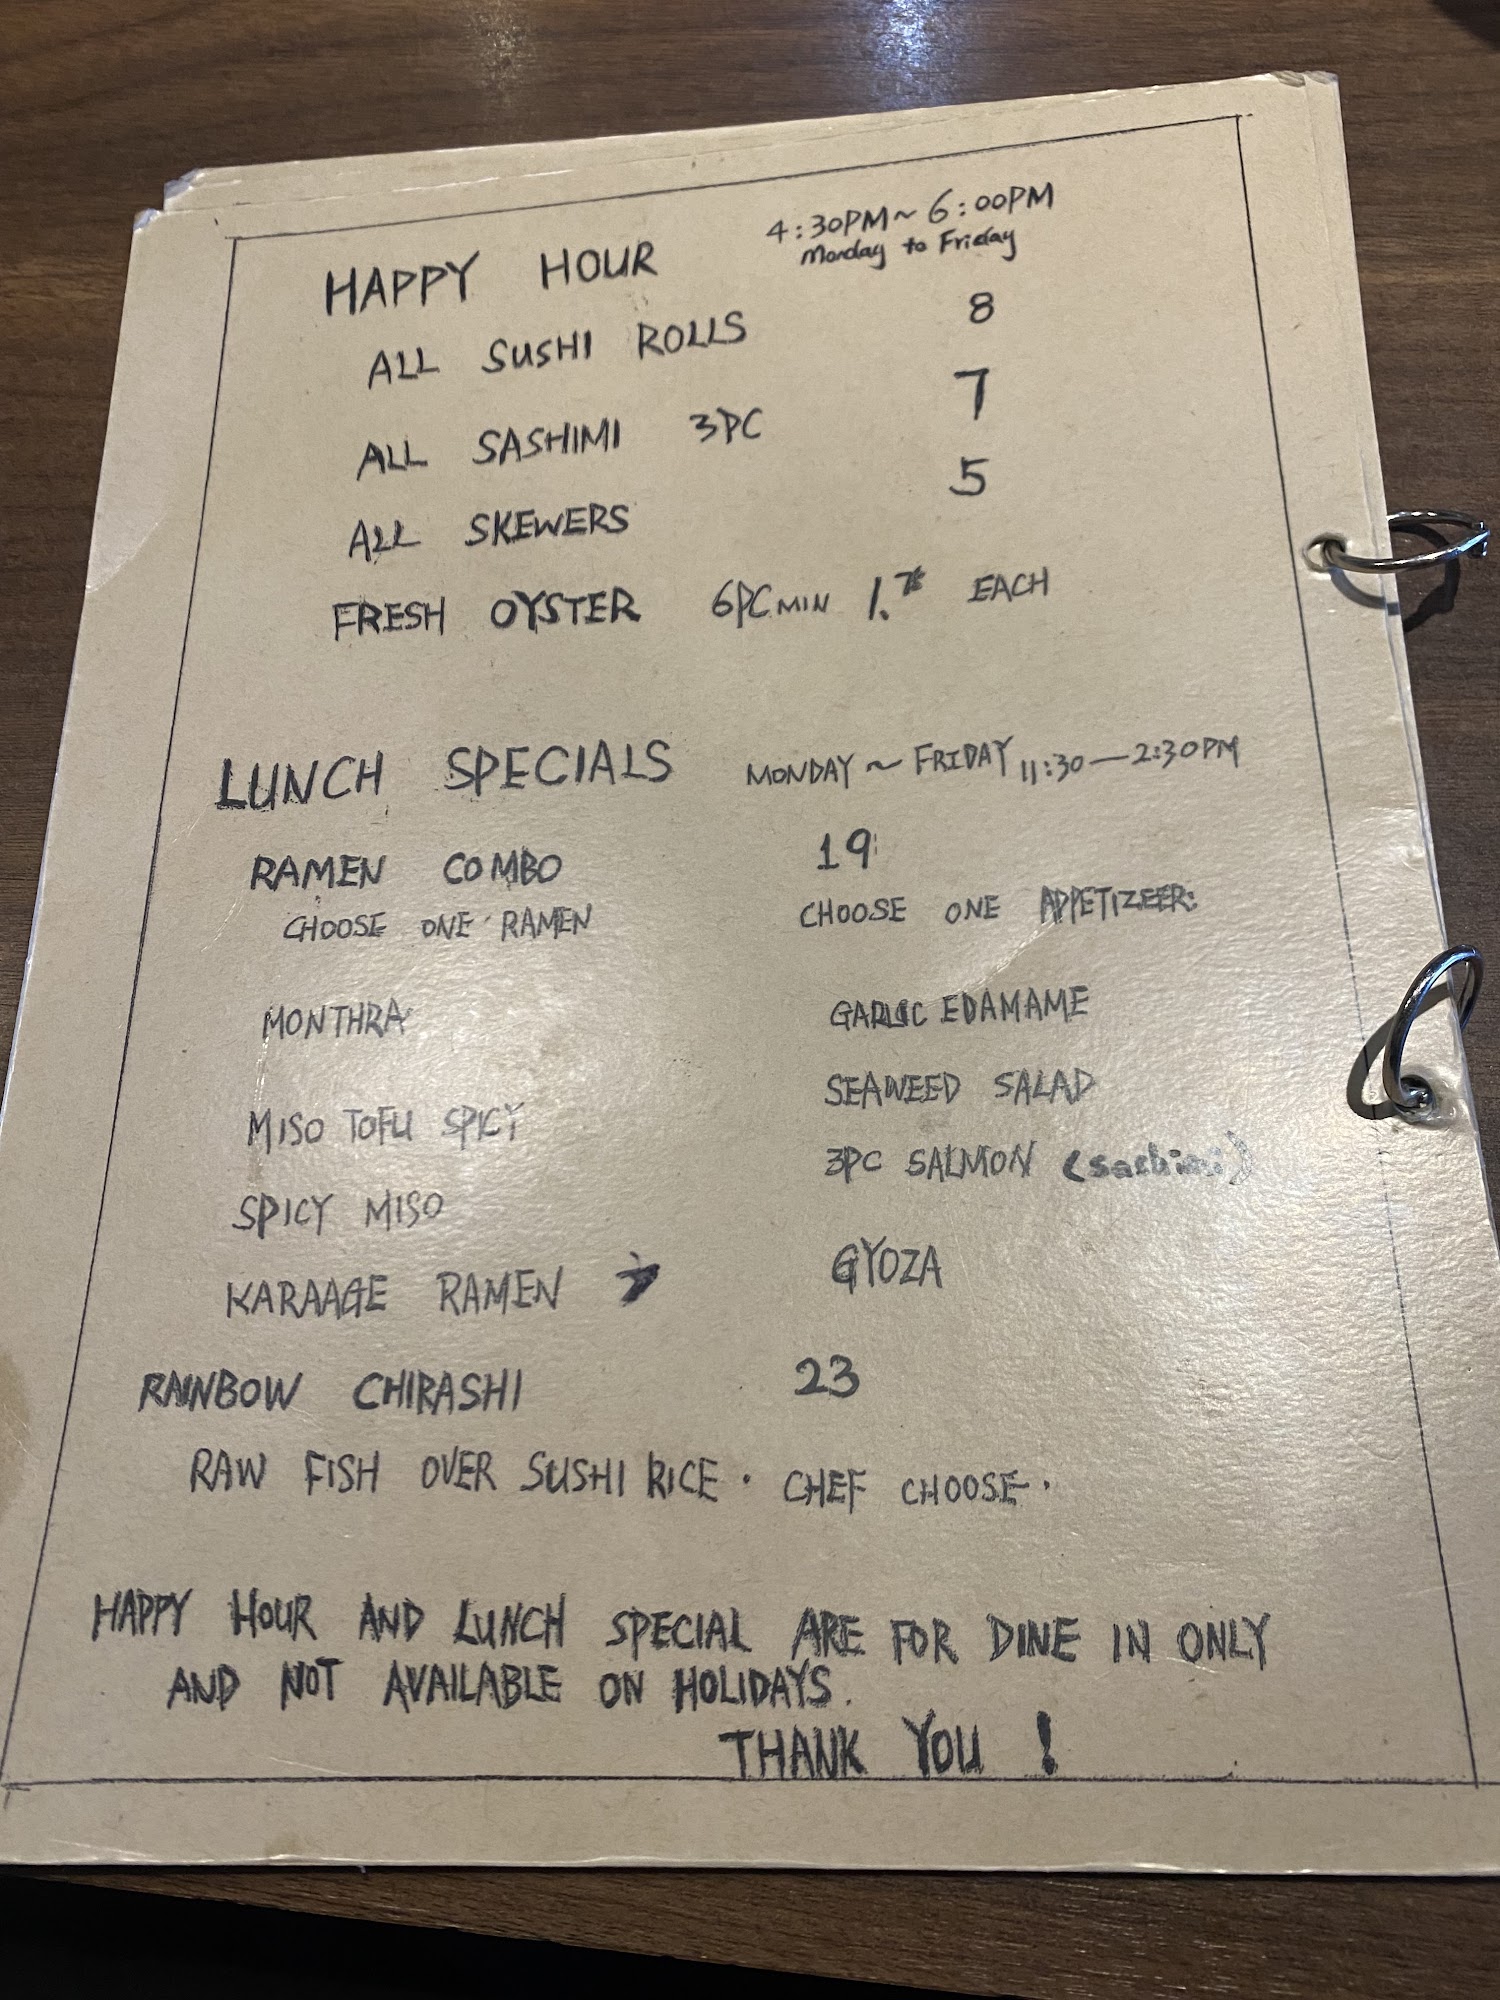 HAPPY HOUR 4:30PM~6:00PM
Monday to Friday
ALL SUSHI ROLLS 8
ALL SASHIMI 3PC 7
ALL SKEWERS 5
FRESH OYSTER 6PC MIN 1.75 EACH
LUNCH SPECIALS MONDAY ~ FRIDAY 11:30—2:30PM
RAMEN COMBO 19
CHOOSE ONE RAMEN CHOOSE ONE APPETIZEER:
MONTHRA GARLIC EDAMAME
SEAWEED SALAD
MISO TOFU SPICY
3PC SALMON (sashimi)
SPICY MISO
KARAAGE RAMEN GYOZA
RAINBOW CHIRASHI 23
RAW FISH OVER SUSHI RICE. CHEF CHOOSE.
HAPPY HOUR AND LUNCH SPECIAL ARE FOR DINE IN ONLY
AND NOT AVAILABLE ON HOLIDAYS.
THANK YOU !